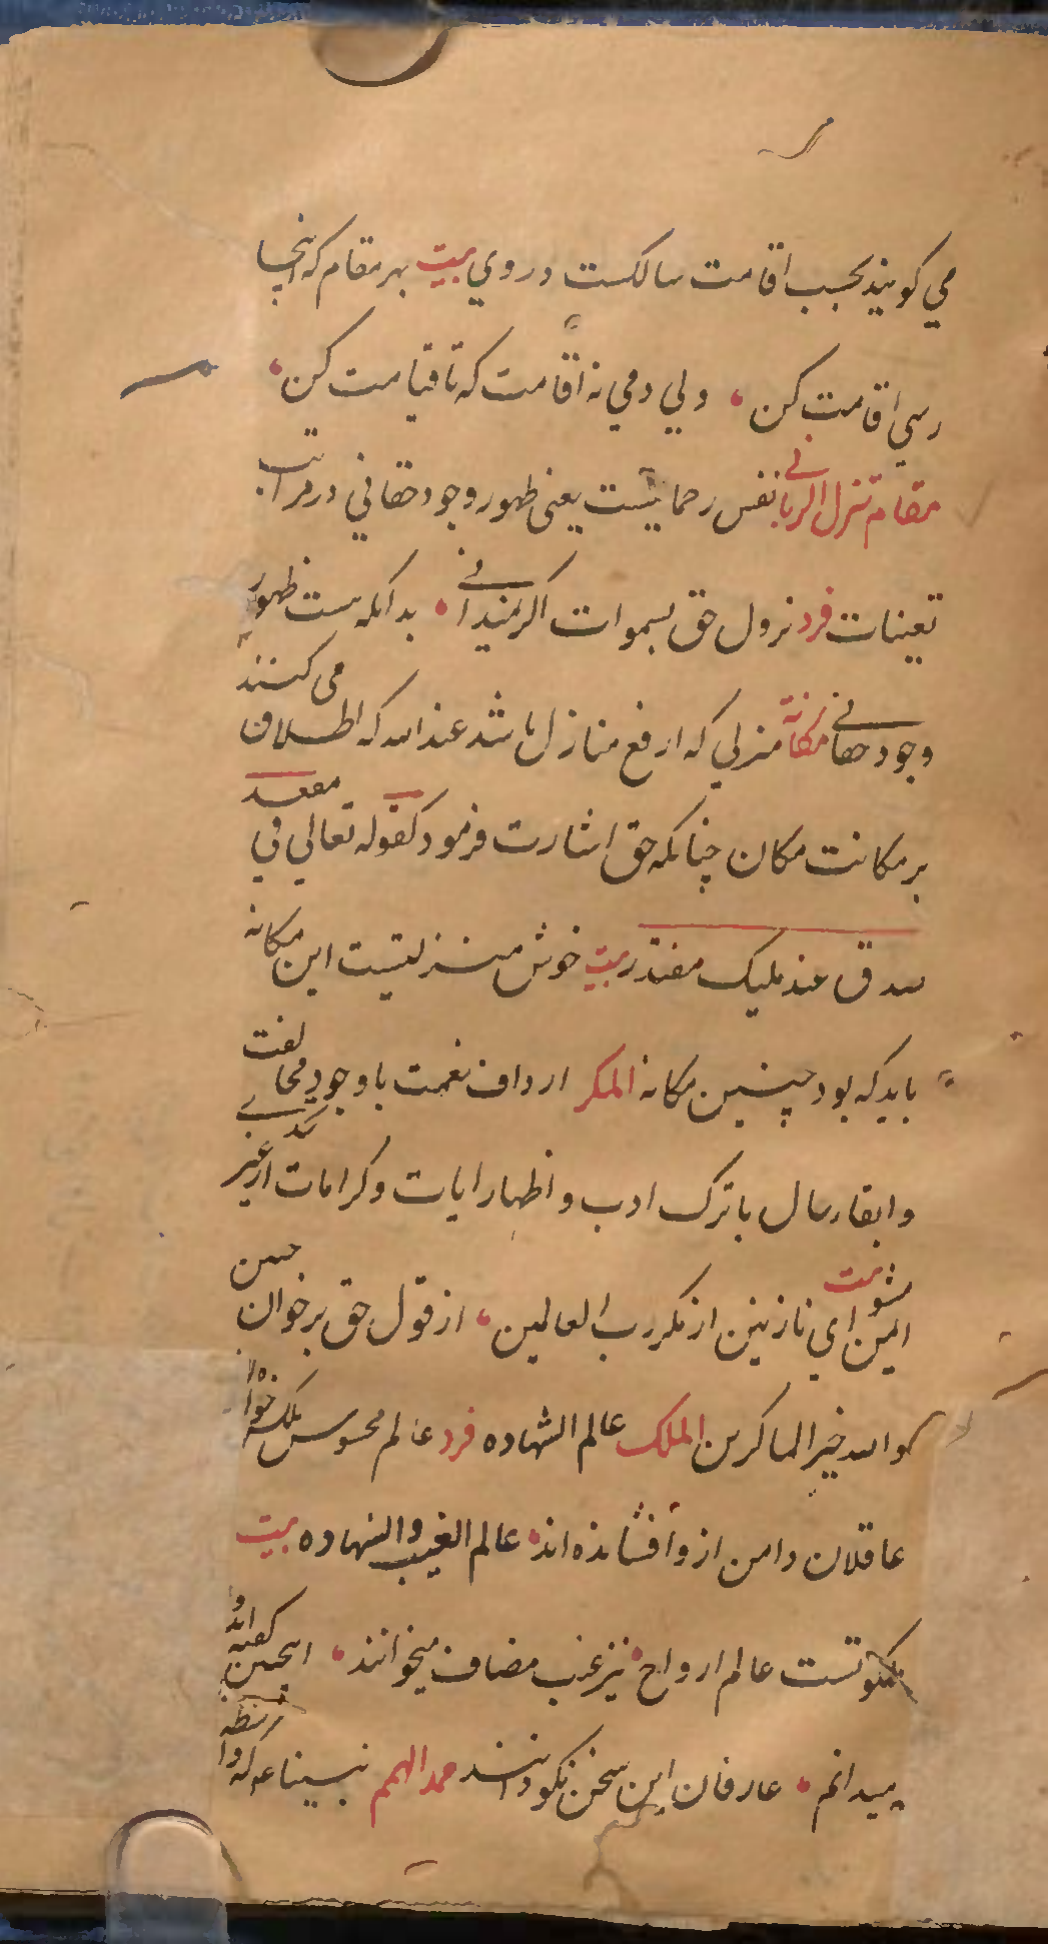 می کویند بحسب اقامت سالکست در وی بیت بهر مقام که اینجا
رسی اقامت کن ولی دمی نه اقامت که تا قیامت کن
مقام تنزل الربانی نفس رحمانیست یعنی ظهور وجود حقانی در مراتب
تعینات فرد نزول حق بسموات اکر میدانی بدانکه هست ظهور
وجود حقانی مکانة منزلی که ارفع منازل باشد عند الله که اطلاق می کنند
بر مکانت مکان چنانکه حق اشارت فرمود کقوله تعالی فی مقعد
صدق عند ملیک مقتدر بیت خوش منزلیست این مکانه
باید که بود چنین مکانه المکر ارداف نعمت با وجود مخالفت
وابقاء حال با ترک ادب و اظهار ایات و کرامات از غیر
ایمن مشو ای نازنین از مکر رب العالمین از قول حق برخوان
والله خیر الماکرین الملک عالم الشهاده فرد عالم محسوس ملکش
عاقلان دامن ازو افشانده اند عالم الغیب والشهاده بیت
ملکوتست عالم ارواح نیز غیب مضاف میخوانند اینچنین گفته اند و
میدانم عارفان این سخن نکو دانند ممد الهمم نبینا که واسطه